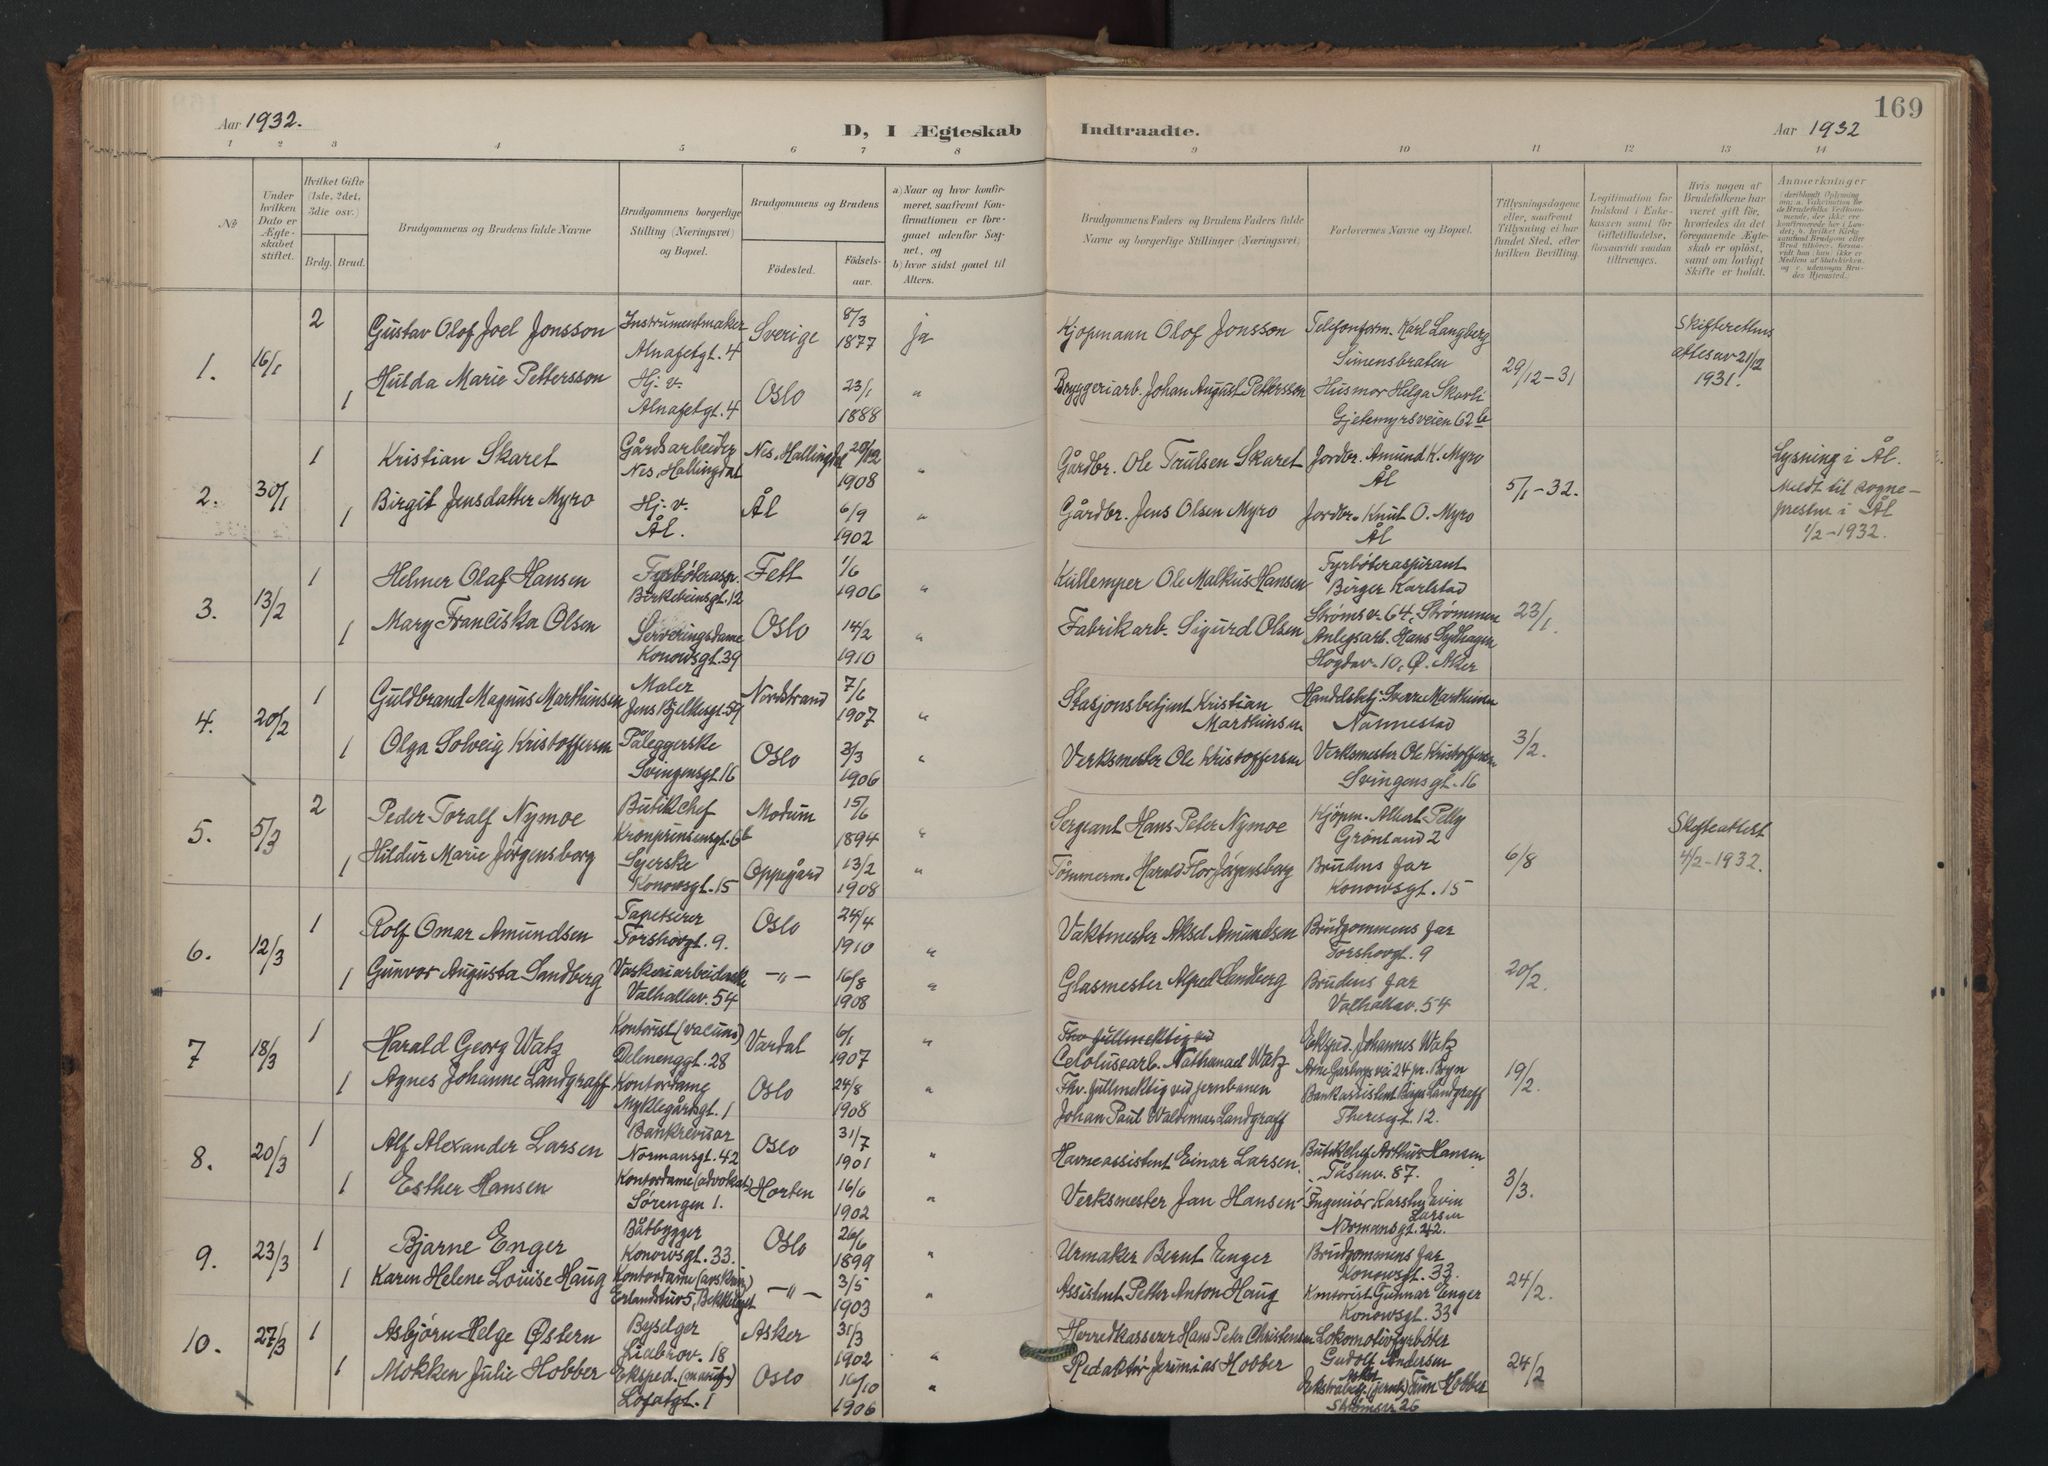 Aar 1932.
D, I Ægteskab
Indtraadte.
169
Aar 1932
1 2 3 4 5 6 7 8 9 10 11 12 13 14
No
Under hvilken Dato er Ægteskabet stiftet.
Hvilket Gifte (1ste, 2det, 3die osv.)
Brdg. Brud.
Brudgommens og Brudens fulde Navne
Brudgommens borgerlige Stilling (Næringsvei) og Bopæl.
Brudgommens og Brudens
Fødested.
Fødselsaar.
a) Naar og hvor konfirmeret, saafremt Konfirmationen er foregaaet udenfor Sognet, og
b) hvor sidst gaaet til Alters.
Brudgommens Faders og Brudens Faders fulde Navne og borgerlige Stillinger (Næringsvei)
Forlovernes Navne og Bopæl.
Tillysningsdagene eller, saafremt Tillysning ei har fundet Sted, efter hvilken Bevilling.
Legitimation for Indskud i Enkekassen samt for Giftetilladelse, forsaavidt saadan tiltrænges.
Hvis nogen af Brudefolkene har været gift før, hvorledes da det foregaaende Ægteskab er opløst, samt om lovligt Skifte er holdt.
Anmerkninger
1. 16/1 2 Gustav Olof Joel Jonsson Instrumentmaker Alnafetgt. 4 Sverige 8/3 1877 ja Kjøpmann Olof Jonsson Telefonform. Karl Langberg Simensbråten 29/12-31 Skifterettens attest av 21/12 1931.
1 Hulda Marie Pettersson Hj. v. Alnafetgt. 4 Oslo 23/1 1888 " Bryggeriarb. Johan August Pettersson Husmor Helga Skarli Gjetemyrsveien 62b
2. 30/1 1 Kristian Skaret Gårdsarbeider Nes, Hallingdal Nes, Hallingdal 29/12 1908 " Gårdbr. Ole Trulsen Skaret Jordbr. Amund K. Myro Ål 5/1-32. Lysning i Ål. Meldt til sogneprestn. i Ål 1/2-1932.
1 Birgit Jensdatter Myro Hj. v. Ål. Ål 6/9 1902 " Gårdbr. Jens Olsen Myro Jordbr. Knut O. Myro Ål
3. 13/2 1 Helmer Olaf Hansen Fyrbøterasp. Birkebeinsgt. 12 Fett 1/6 1906 " Kullemper Ole Malkus Hansen Fyrbøteraspirant Birger Karlstad Strømsv. 64, Strømmen 23/1.
1 Mary Franciska Olsen Serveringsdame Konowsgt. 39 Oslo 14/2 1910 " Fabrikarb. Sigurd Olsen Anlegsarb. Hans Sydhagen Høgdav. 10, Ø. Aker
4. 20/2 1 Guldbrand Magnus Marthinsen Maler Jens Bjelkesgt. 59 Nordstrand 7/6 1907 " Stasjonsbetjent Kristian Marthinsen Handelsbetj. Sverre Marthinsen Nannestad 3/2.
1 Olga Solveig Kristoffersen Påleggerske Svingensgt. 16 Oslo 3/3 1906 " Verksmester Ole Kristoffersen Verksmester Ole Kristoffersen Svingensgt. 16
5. 5/3 2 Peder Toralf Nymoe Butikchef Kronprinsensgt. 6b Modum 15/6 1894 " Sergeant Hans Peter Nymoe Kjøpm. Albert Pelly Grønland 2 6/8 Skifteattest 4/2-1932.
1 Hildur Marie Jørgensborg Syerske Konowsgt. 15 Oppegård 13/2 1908 " Tømmerm. Harald Flor Jørgensborg Brudens far Konowsgt. 15
6. 12/3 1 Rolf Omar Amundsen Tapetserer Torshovgt. 9. Oslo 24/4 1910 " Vaktmester Aksel Amundsen Brudgommens far Torshovgt. 9 20/2.
1 Gunvor Augusta Sandberg Vaskeriarbeiderske Valhallav. 54 -"- 16/8 1908 " Glasmester Alfred Sandberg Brudens far Valhallav. 54
7 18/3 1 Harald Georg Watz Kontorist (vacuum) Delenenggt. 28 Vardal 6/1 1907 " Celolusearb. Nathanael Watz Eksped. Johannes Watz Arne Garborgs vei 24 19/2.
1 Agnes Johanne Landgraff Kontordame Myklegårdsgt. 1 Oslo 24/8 1908 " Fhv. fullmektig ved jernbanen Johan Paul Waldemar Landgraff Bankassistent Landgraff Theresgt. 12.
8. 20/3 1 Alf Alexander Larsen Bankrevisor Normansgt. 42 Oslo 31/7 1901 " Havneassistent Einar Larsen. Butikchef Arthur Hansen Tåsenv. 87. 3/3.
1 Esther Hansen Kontordame (advokat) Sørengen 1. Horten 16/6 1902 " Verksmester Jan Hansen Ingeniør Karsten Larsen Normansgt. 42.
9. 23/3 1 Bjarne Enger Båtbygger Konowsgt. 33. Oslo 26/6 1899 " Urmaker Bernt Enger Brudgommens far Konowsgt. 33. 24/2.
1 Karen Helene Louise Haug Kontordame Bekkelaget -"- 3/5 1903 " Assistent Petter Anton Haug Kontorist Gunnar Enger Konowsgt. 33
10. 27/3 1 Asbjørn Helge Østern Byselger Liabrov. 18 Asker 31/3 1902 " Herredkasserer Hans Peter Christensen Lokomotivfyrbøter Gudolf Andersen Asker 24/2
1 Mokken Julie Hobber Eksped. Lofatgt. 1 Oslo 16/10 1906 " Redaktør Jerimias Hobber Hobber Strømsv. 26